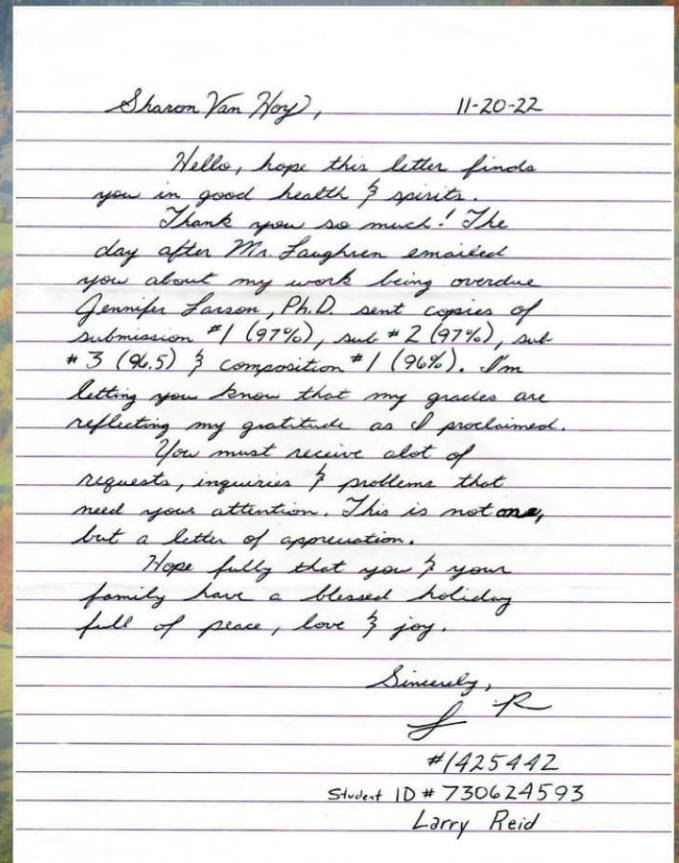 Sharon Van Hoy, 11-20-22
Hello, hope this letter finds
you in good health & spirits.
Thank you so much! The
day after Mr. Laughren emailed
you about my work being overdue
Jennifer Larson, Ph.D. sent copies of
submission #1 (97%), sub #2 (97%), sub
#3 (96.5) & composition #1 (96%). I'm
letting you know that my grades are
reflecting my gratitude as I proclaimed.
You must receive alot of
requests, inquiries & problems that
need your attention. This is not one,
but a letter of appreciation.
Hope fully that you & your
family have a blessed holiday
full of peace, love & joy.
Sincerely,
L R
#1425442
Student ID # 730624593
Larry Reid